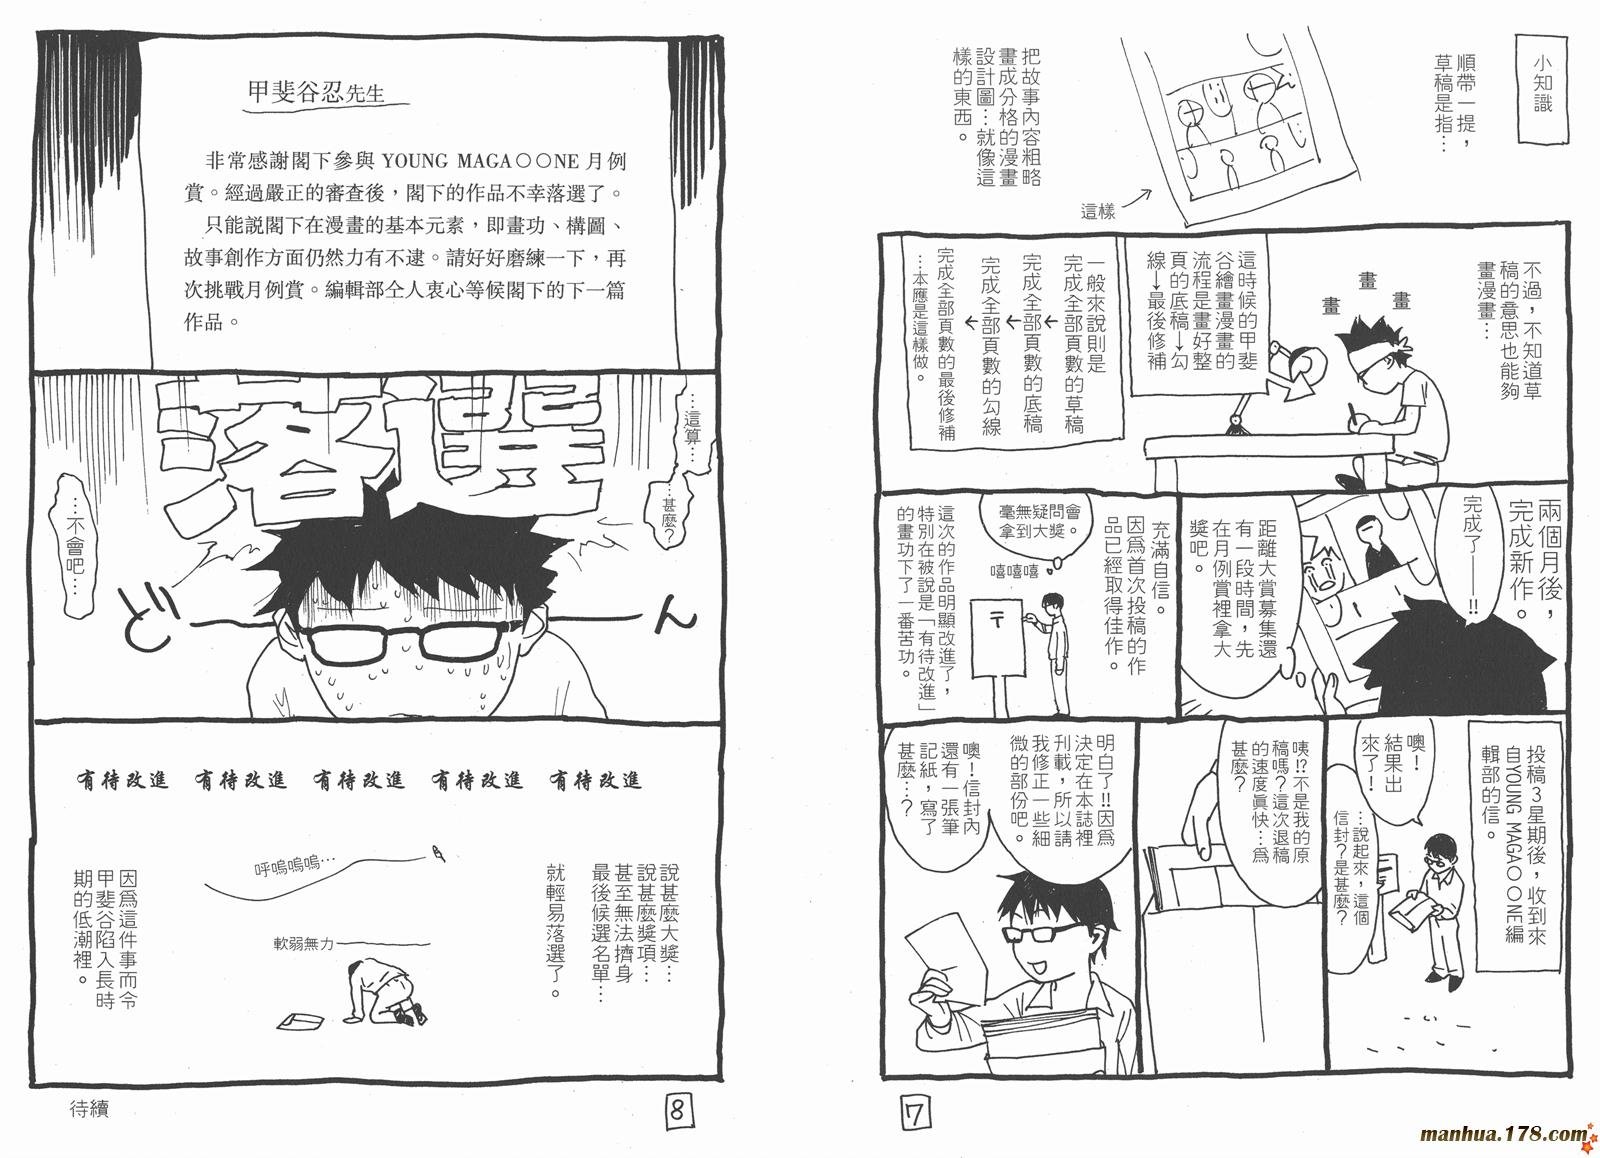 小知識
順帶一提，
草稿是指…
把故事內容粗略
畫成分格的漫畫
設計圖…就像這
樣的東西。
這樣
不過，不知道草
稿的意思也能夠
畫漫畫…
畫
畫
畫
這時候的甲斐
谷繪畫漫畫的
流程是畫好整
頁的底稿→勾
線→最後修補
一般來說則是
完成全部頁數的草稿
↓
完成全部頁數的底稿
↓
完成全部頁數的勾線
↓
完成全部頁數的最後修補
…本應是這樣做。
兩個月後，
完成新作。
完成了——!!
距離大賞募集還
有一段時間，先
在月例賞裡拿大
獎吧。
充滿自信。
因爲首次投稿的作
品已經取得佳作。
毫無疑問會
拿到大獎。
嘻嘻嘻
〒
這次的作品明顯改進了，
特別在被說是「有待改進」
的畫功下了一番苦功。
投稿3星期後，收到來
自YOUNG MAGA○○NE編
輯部的信。
噢！
結果出
來了！
…說起來，這個
信封?是甚麼?
咦!?不是我的原
稿嗎？這次退稿
的速度眞快…爲
甚麼？
明白了!!因爲
決定在本誌裡
刊載，所以請
我修正一些細
微的部份吧。
噢！信封內
還有一張筆
記紙，寫了
甚麼…？
7
甲斐谷忍先生
非常感謝閣下參與 YOUNG MAGA○○NE 月例
賞。經過嚴正的審查後，閣下的作品不幸落選了。
只能說閣下在漫畫的基本元素，即畫功、構圖、
故事創作方面仍然力有不逮。請好好磨練一下，再
次挑戰月例賞。編輯部仝人衷心等候閣下的下一篇
作品。
落選
…這算…
…甚麼？
…不會吧…
どーん
有待改進 有待改進 有待改進 有待改進 有待改進
說甚麼大獎…
說甚麼獎項…
甚至無法擠身
最後候選名單…
就輕易落選了。
呼嗚嗚嗚…
軟弱無力
因爲這件事而令
甲斐谷陷入長時
期的低潮裡。
待續
8
manhua.178.com